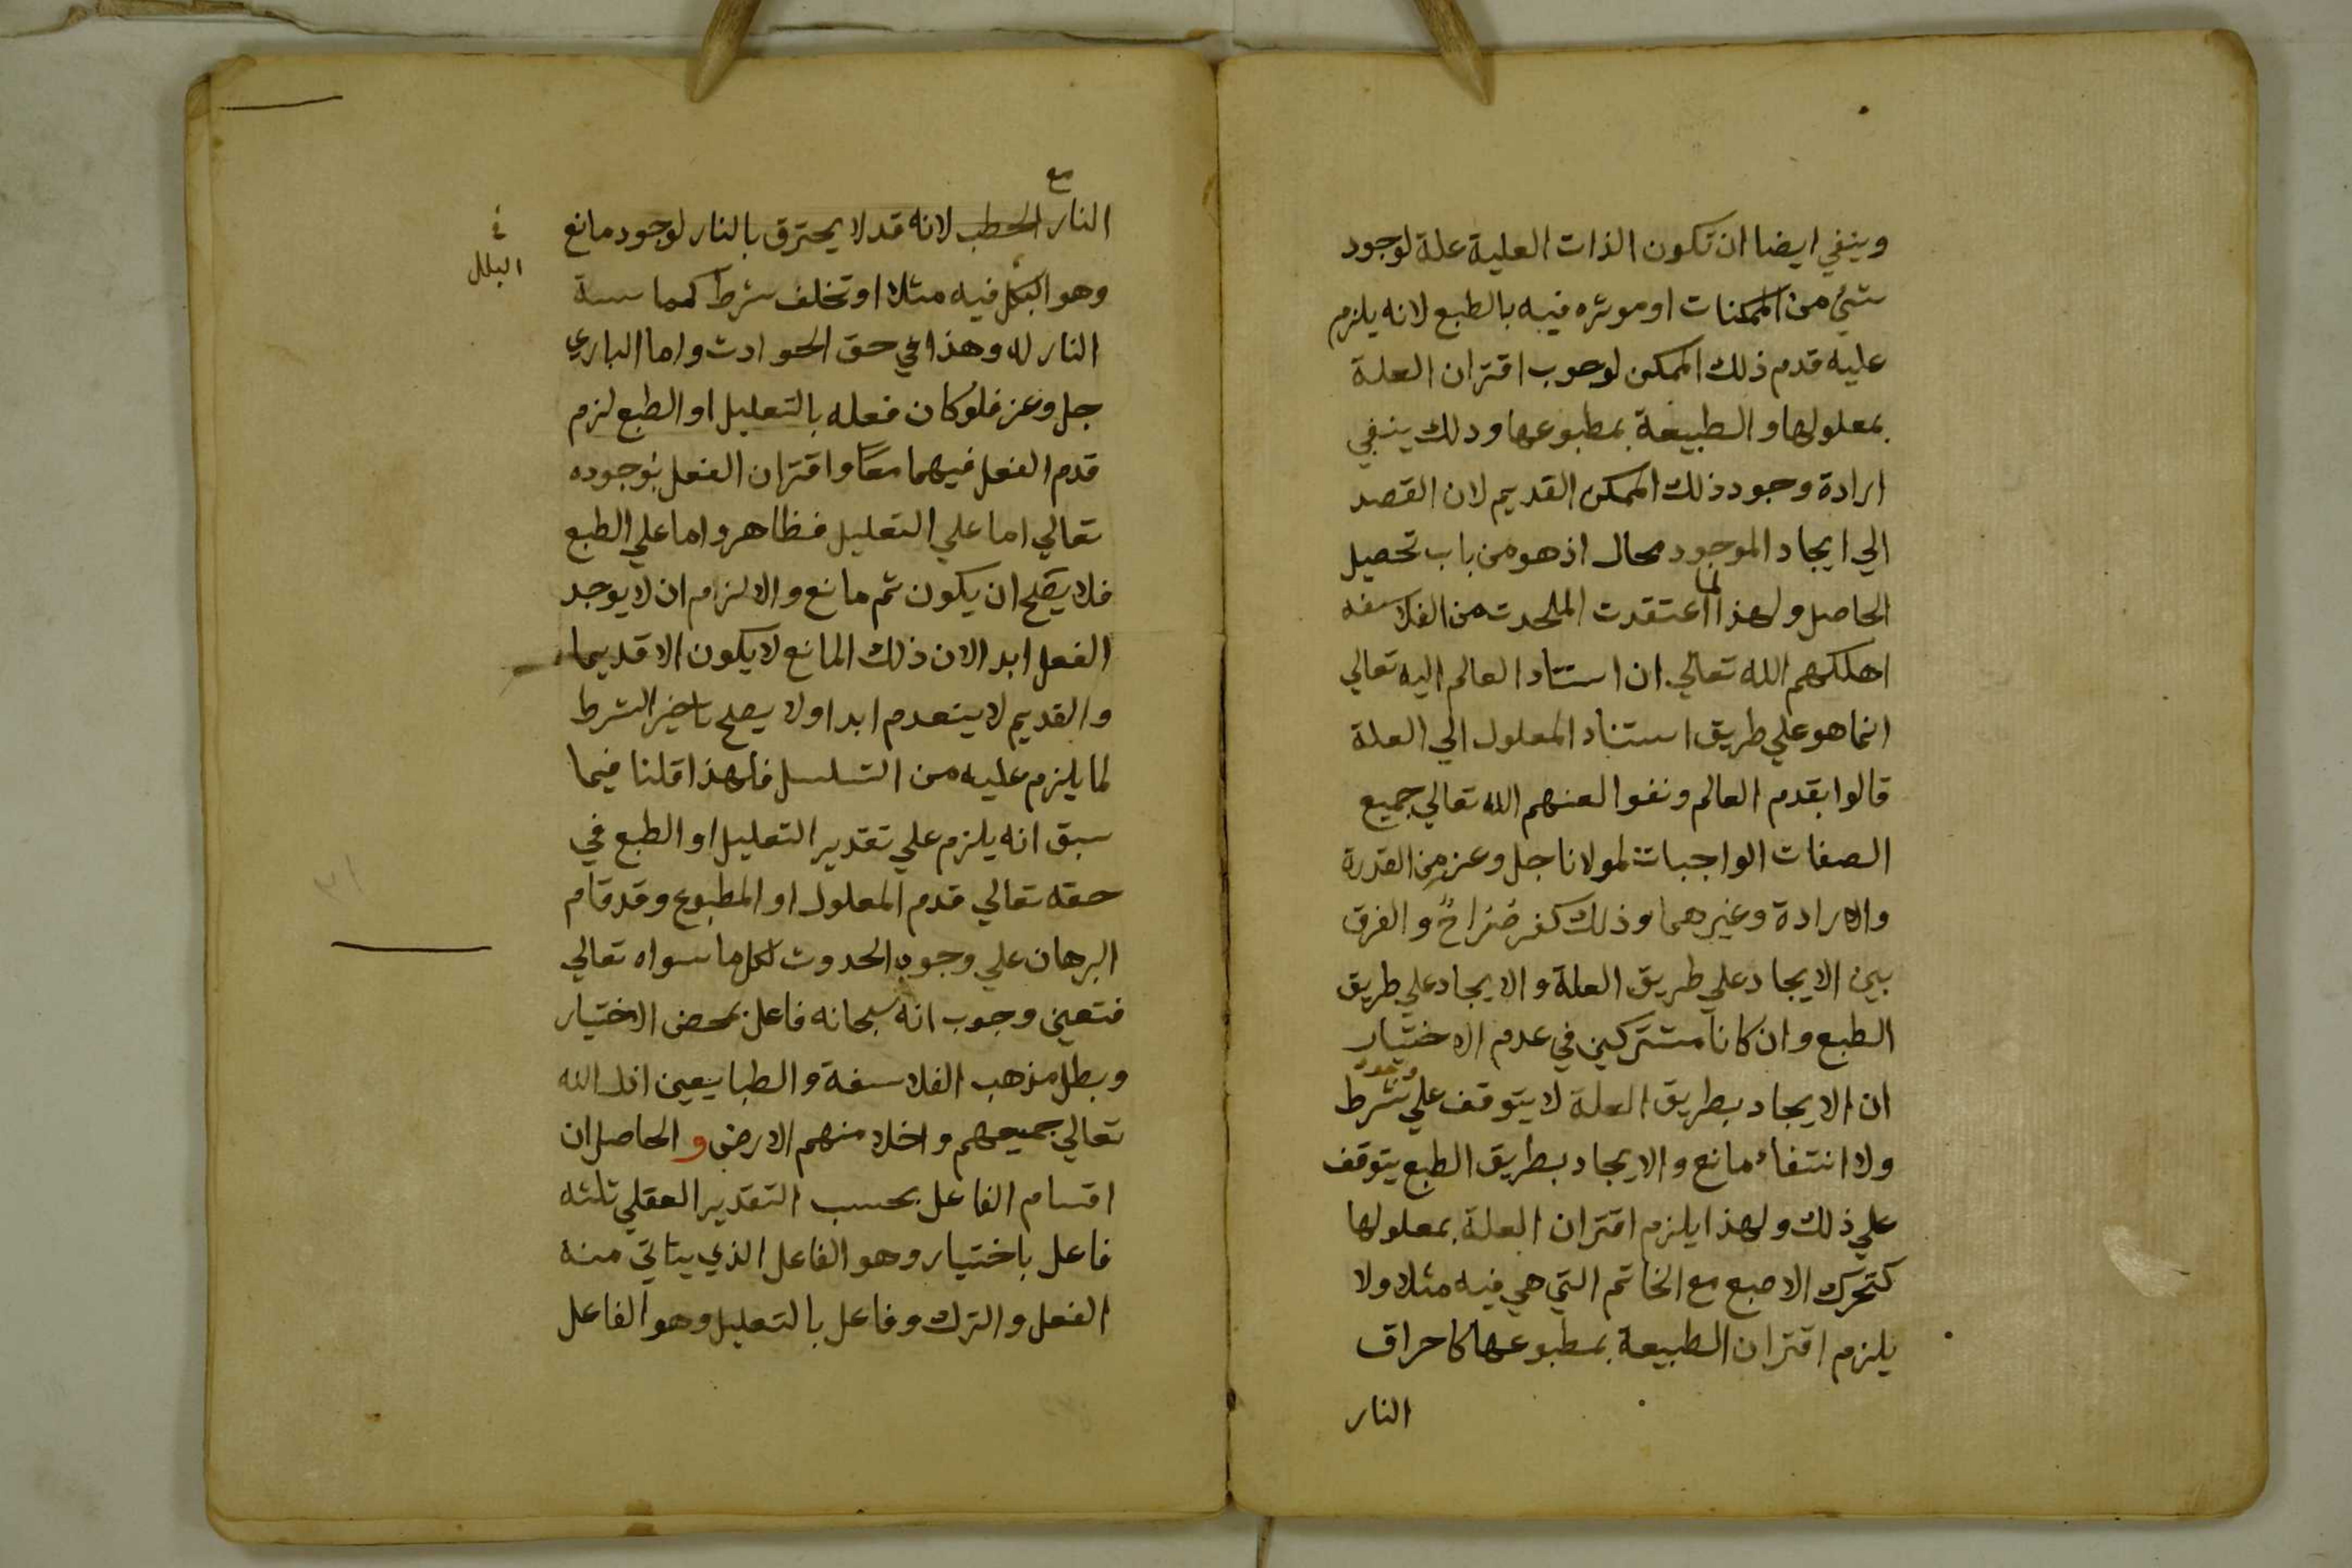 وينفي ايضا ان تكون الذات العلية علة لوجود
شئ من الممكنات او موثره فيه بالطبع لانه يلزم
عليه قدم ذلك الممكن لوجوب اقتران العلة
بمعلولها والطبيعة بمطبوعها وذلك ينفي
ارادة وجود ذلك الممكن القديم لان القصد
الي ايجاد الموجود محال اذ هو من باب تحصيل
الحاصل ولهذا لما اعتقدت الملحدت من الفلاسفه
اهلكهم الله تعالي ان استناد العالم اليه تعالي
انما هو علي طريق استناد المعلول الي العلة
قالوا بقدم العالم ونفوا لعنهم الله تعالي جميع
الصفات الواجبات لمولانا جل وعز من القدرة
والارادة وغيرهما وذلك كفر صراح والفرق
بين الايجاد علي طريق العلة والايجاد علي طريق
الطبع وان كانا مشتركين في عدم الاختيار
ان الايجاد بطريق العلة لا يتوقف علي شرط
ولا انتفاء مانع والايجاد بطريق الطبع يتوقف
علي ذلك ولهذا يلزم اقتران العلة بمعلولها
كتحرك الاصبع مع الخاتم التي هي فيه مثلا ولا
يلزم اقتران الطبيعة بمطبوعها كاحراق
النار
النار مع الحطب لانه قد لا يحترق بالنار لوجود مانع
وهو البلل فيه مثلا او تخلف شرط كمماسسة
البلل
النار له وهذا في حق الحوادث واما الباري
جل وعز فلو كان فعله بالتعليل او الطبع لزم
قدم الفعل فيهما معًا واقتران الفعل بوجوده
تعالي اما علي التعليل فظاهر واما علي الطبع
فلا يصح ان يكون ثم مانع والا لزم ان لا يوجد
الفعل ابدا لان ذلك المانع لا يكون الا قديما
والقديم لا ينعدم ابدا ولا يصلح تاخير الشرط
لما يلزم عليه من التسلسل فلهذا قلنا فيما
سبق انه يلزم علي تقدير التعليل او الطبع في
حقه تعالي قدم المعلول او المطبوع وقد قام
البرهان علي وجوب الحدوث لكل ما سواه تعالي
فتعين وجوب انه سبحانه فاعل بمحض الاختيار
وبطل مذهب الفلاسفة والطبايعين اذل الله
تعالي جميعهم واخلا منهم الارض والحاصل ان
اقسام الفاعل بحسب التقدير العقلي ثلثه
فاعل باختيار وهو الفاعل الذي يتاتي منه
الفعل والترك وفاعل بالتعليل وهو الفاعل